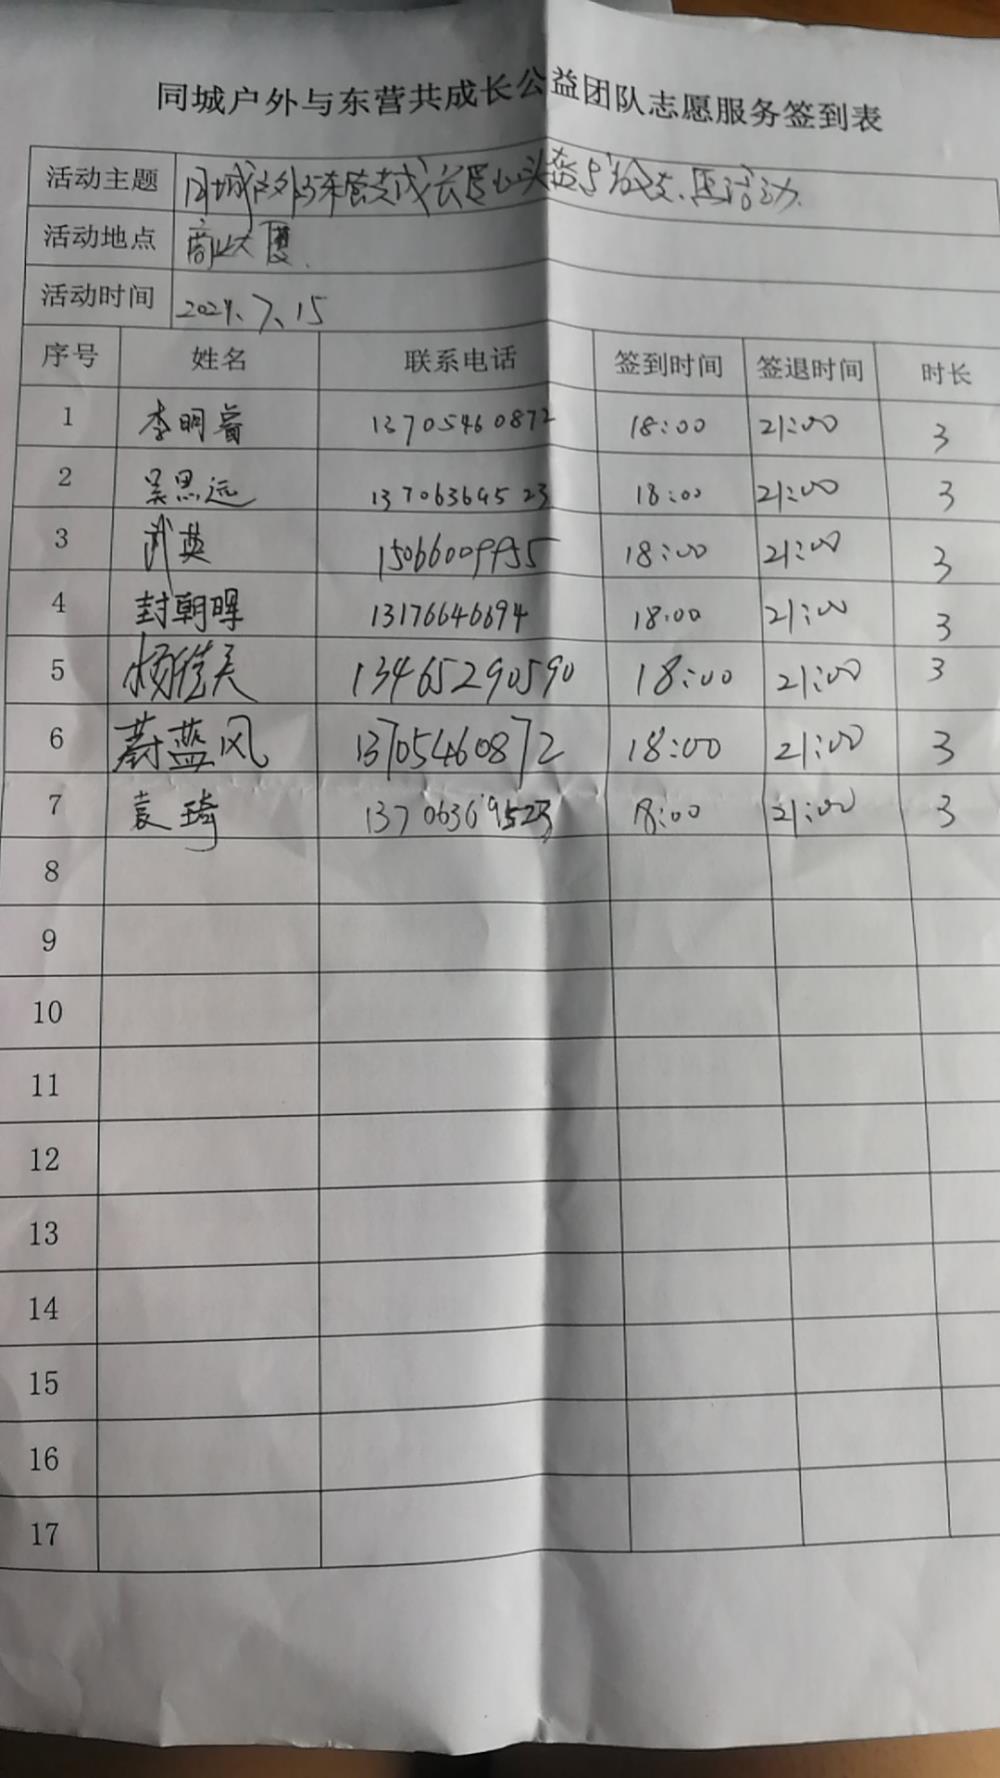 同城户外与东营共成长公益团队志愿服务签到表
活动主题 同城户外与东营共成长
活动地点 商业大厦.
活动时间 2024、7、15
序号 姓名 联系电话 签到时间 签退时间 时长
1 李明睿 13705460872 18:00 21:00 3
2 吴思远 13706369523 18:00 21:00 3
3 武英 15066009955 18:00 21:00 3
4 封朝晖 13176646694 18:00 21:00 3
5 杨佳关 13465290590 18:00 21:00 3
6 蔚蓝风 13705460872 18:00 21:00 3
7 袁琦 13706369523 18:00 21:00 3
8
9
10
11
12
13
14
15
16
17